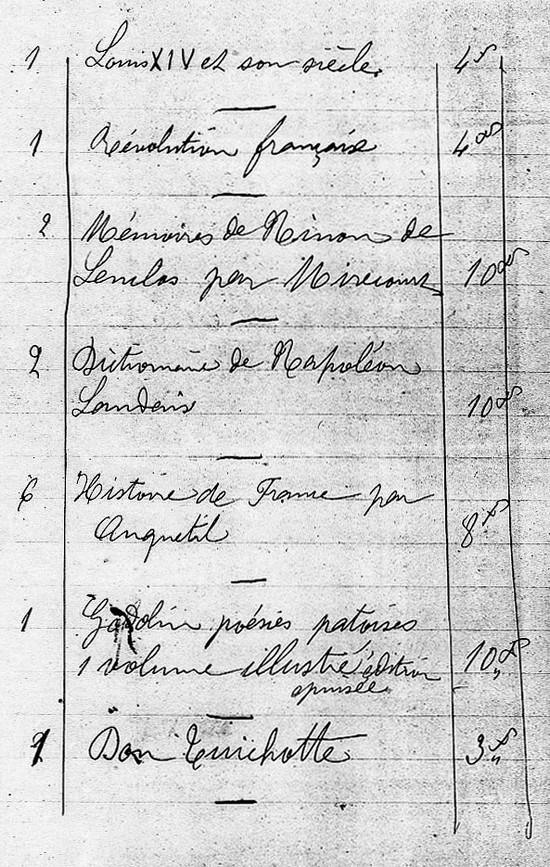 1 Louis XIV et son siècle. 4 fs
1 Révolution française 4 fs
2 Mémoires de Ninon de
Lenclos par Mirecourt 10 fs
2 Dictionnaire de Napoléon
Landais 10 fs
6 Histoire de France par
Anquetil 8 fs
1 Godolin poésies patoises
1 volume illustré édition 10 fs
épuisée
Don Quichotte 3 fs